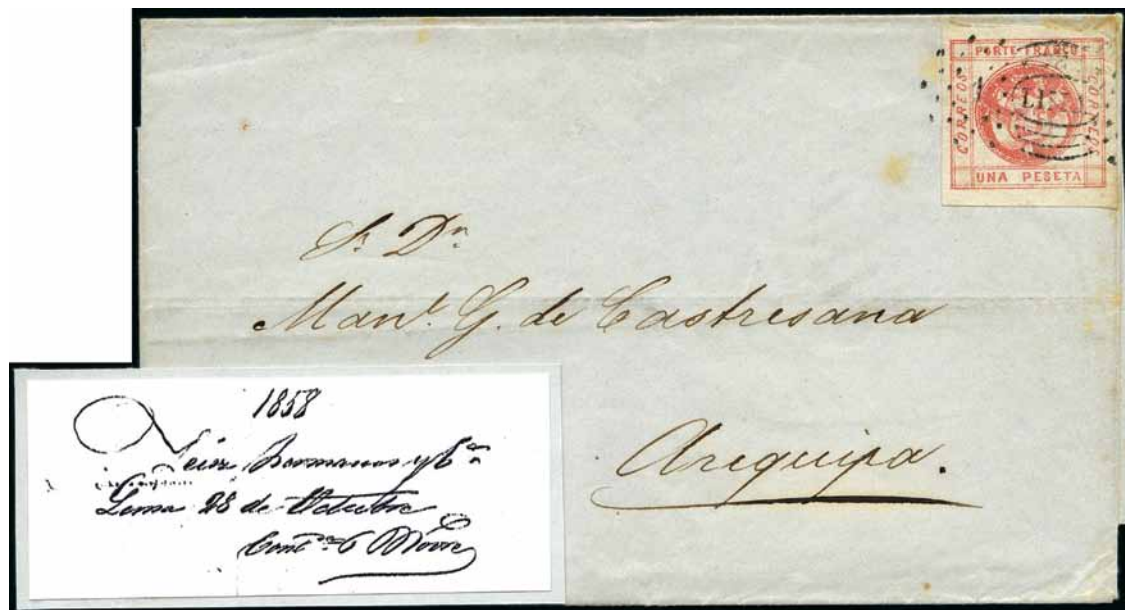 PORTE FRANCO
CORREOS
CORREOS
LIMA
UNA PESETA
Sr Dn
Manl. G. de Castresana
Arequipa.
1858
Hermanos y Ca
Lima 28 de Octubre
Contda 6 Novre